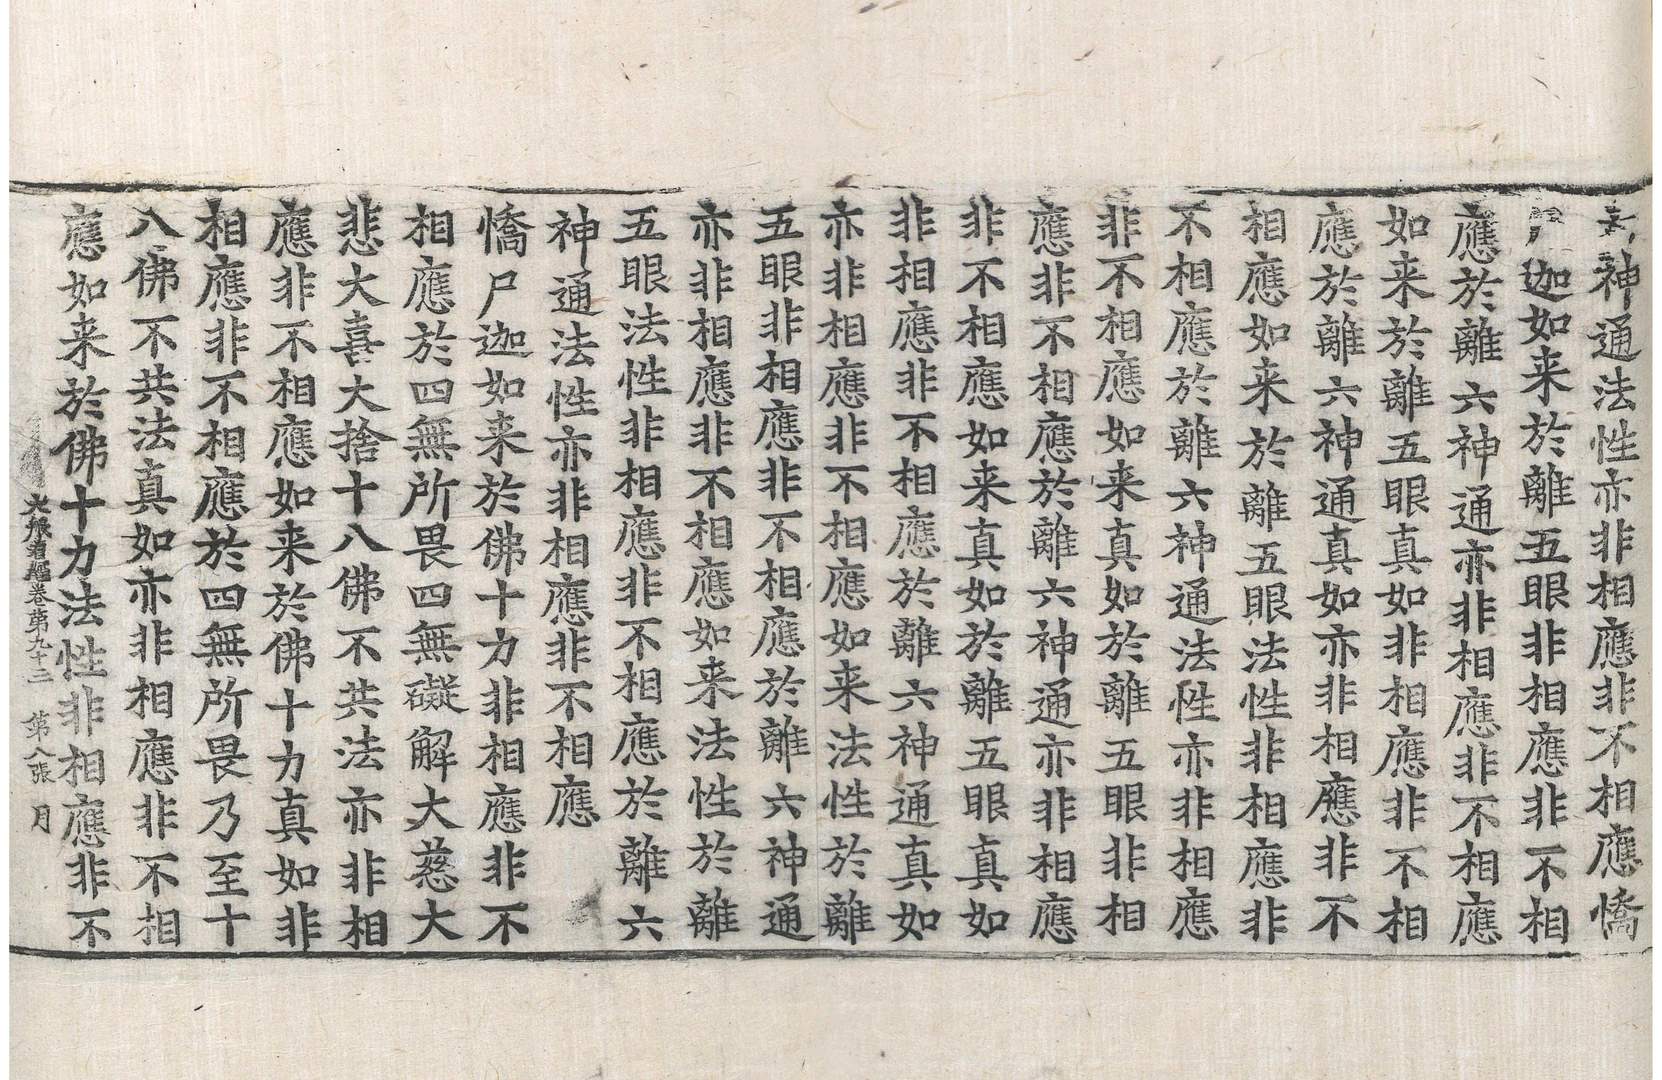 神通法性亦非相應非不相應憍
尸迦如来於離五眼非相應非不相
應於離六神通亦非相應非不相應
如来於離五眼真如非相應非不相
應於離六神通真如亦非相應非不
相應如来於離五眼法性非相應非
不相應於離六神通法性亦非相應
非不相應如来真如於離五眼非相
應非不相應於離六神通亦非相應
非不相應如来真如於離五眼真如
非相應非不相應於離六神通真如
亦非相應非不相應如来法性於離
五眼非相應非不相應於離六神通
亦非相應非不相應如来法性於離
五眼法性非相應非不相應於離六
神通法性亦非相應非不相應
憍尸迦如来於佛十力非相應非不
相應於四無所畏四無礙解大慈大
悲大喜大捨十八佛不共法亦非相
應非不相應如来於佛十力真如非
相應非不相應於四無所畏乃至十
八佛不共法真如亦非相應非不相
應如来於佛十力法性非相應非不
大般若經卷第九十二 第八張 月